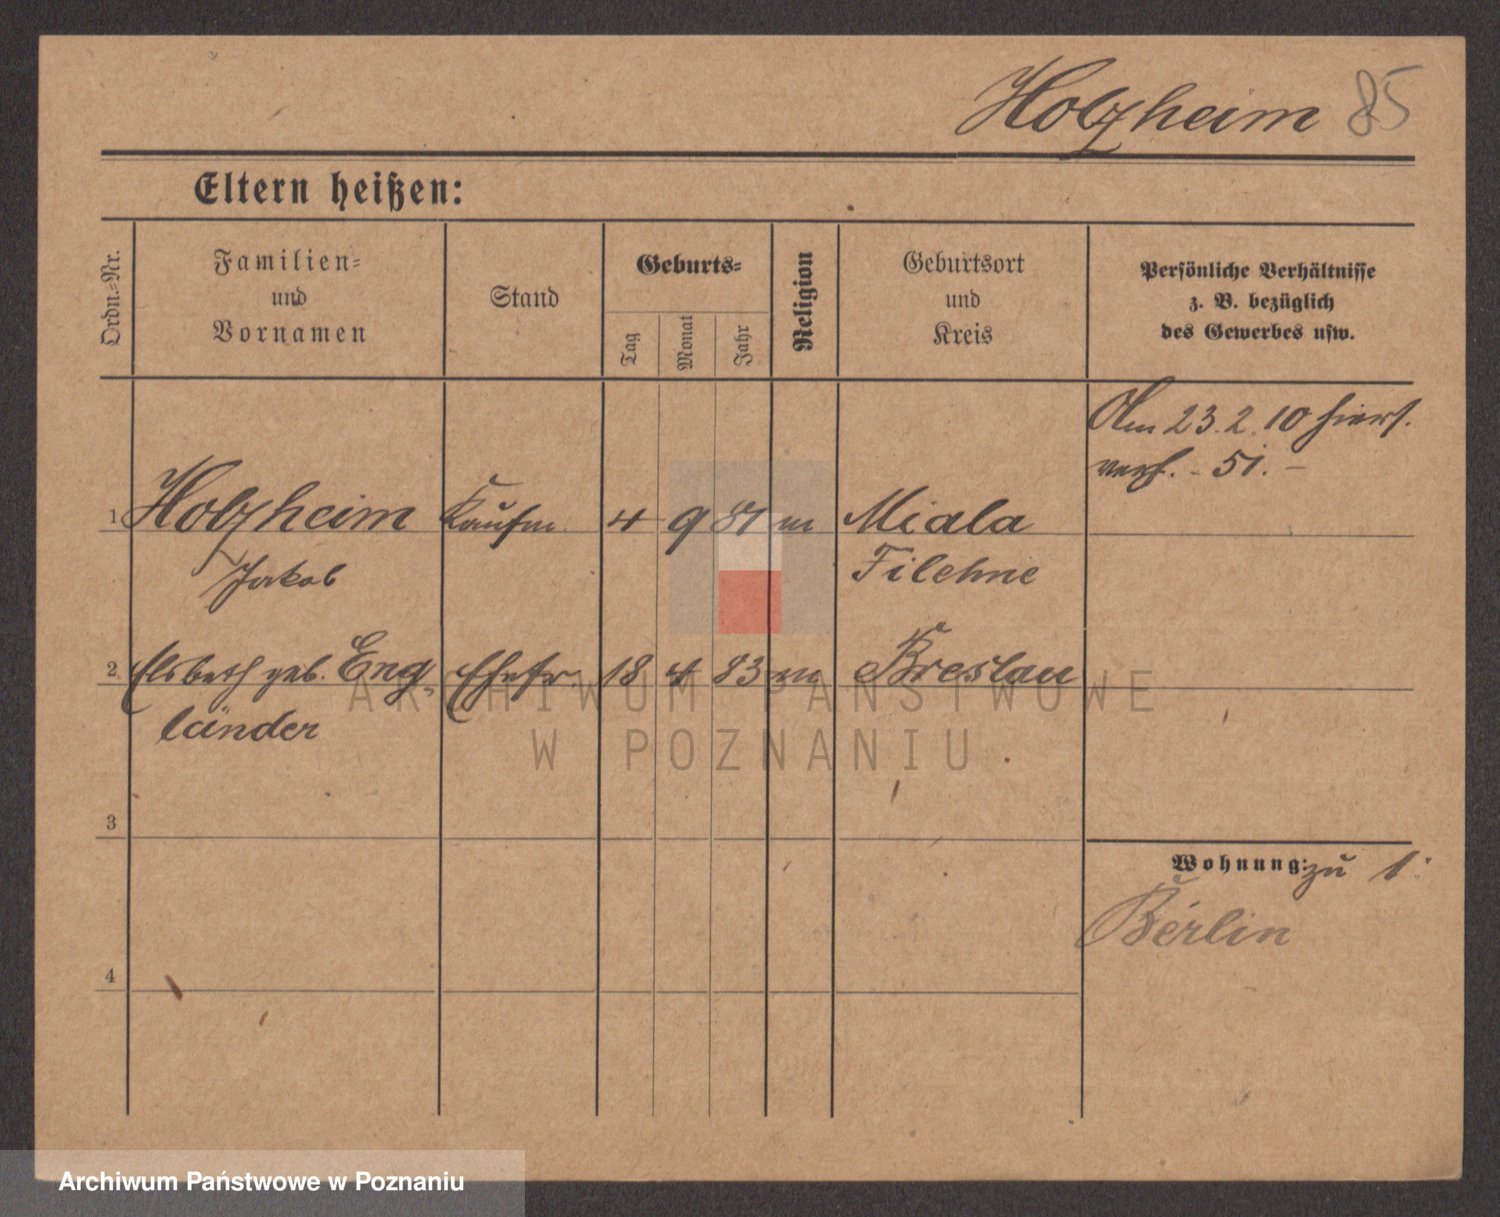 Holzheim 85
Eltern heißen:
Ordn.-Nr.
Familien-
und
Vornamen
Stand
Geburts-
Tag
Monat
Jahr
Religion
Geburtsort
und
Kreis
Persönliche Verhältnisse
z. B. bezüglich
des Gewerbes usw.
Am 23.2.10 hiers.
verh. - 51. -
1 Holzheim Kaufm. 4 9 81 m Miala
Jakob Filehne
2 Elsbeth geb. Eng- Ehefr. 18 4 83 m Breslau
länder
3
Wohnung: zu 1:
Berlin
4
ARCHIWUM PAŃSTWOWE
W POZNANIU
Archiwum Państwowe w Poznaniu